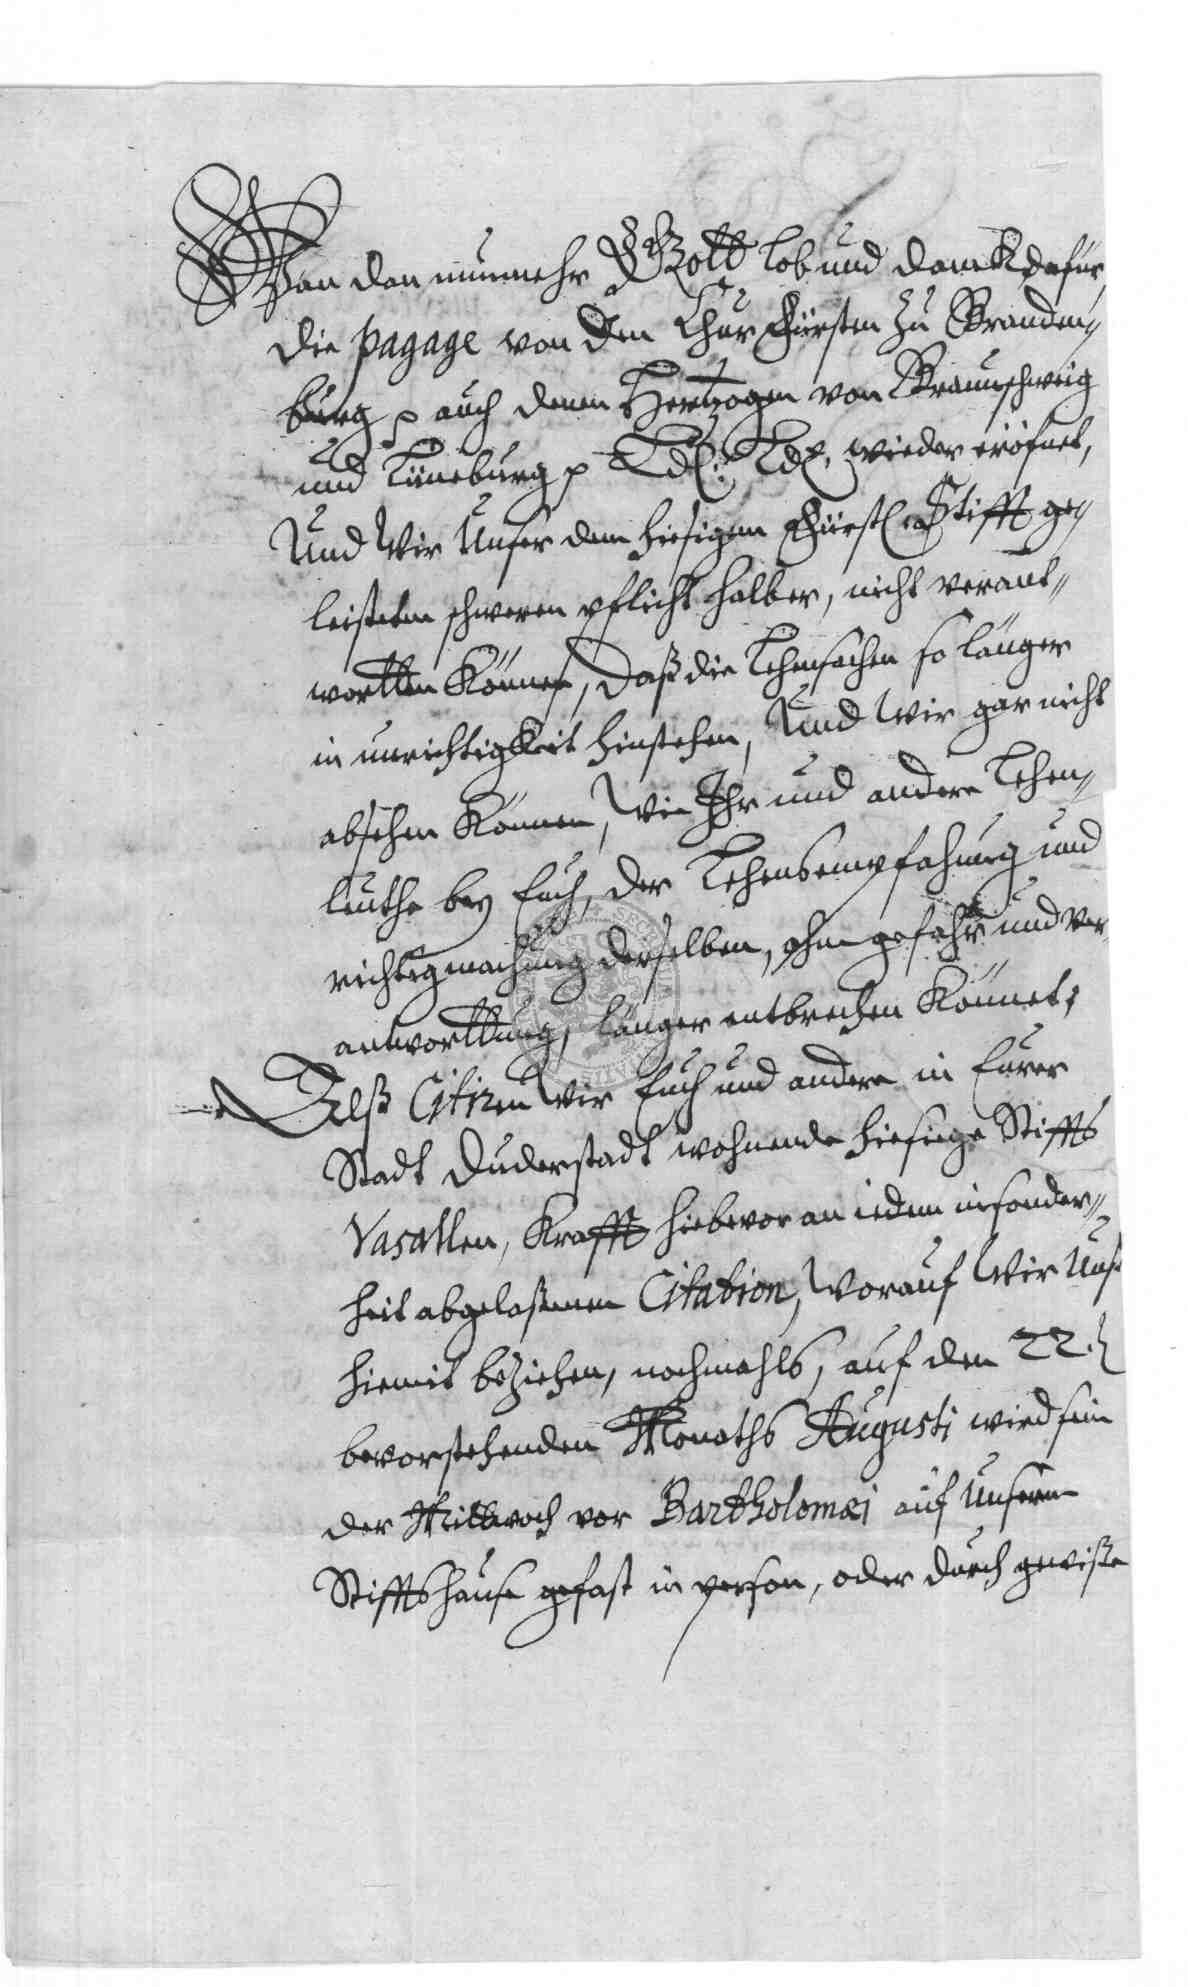 Wan dan nunmehr Gott lob und danck dafür,
die pagage von den Chur Fürsten zu Branden//
burg p auch denen Hertzogen von Braunschweig
und Lüneburg p Ld: Ld. wieder eröfnet,
Und Wir Unser dem hiesigen Fürstl. Stifft ge//
leisteten schweren pflicht halber, nicht verant//
wortten Können, daß die Lehensachen so länger
in unrichtigkeit hinstehen, Und Wir gar nicht
absehen Können, Wie Ihr und andere Lehen//
leuthe bey Euch, der Lehensempfahung und
richtigmachung derselben, ohne gefahr und ver-
antworttung, länger entbrechen Könnet;
Alß Citiren Wir Euch und andere in Eurer
Stadt Duderstadt wohnende hiesige Stiffts
Vasallen, Krafft hiebevor an ieden insonder//
heit abgelaßenen Citation, Worauf Wir Uns
hiemit beziehen, nochmahls, auf den 22.
bevorstehenden Monaths Augusti wird sein
der Mittwoch vor Bartholomæi auf Unserm
Stifftshause gefast in person, oder durch gewiße